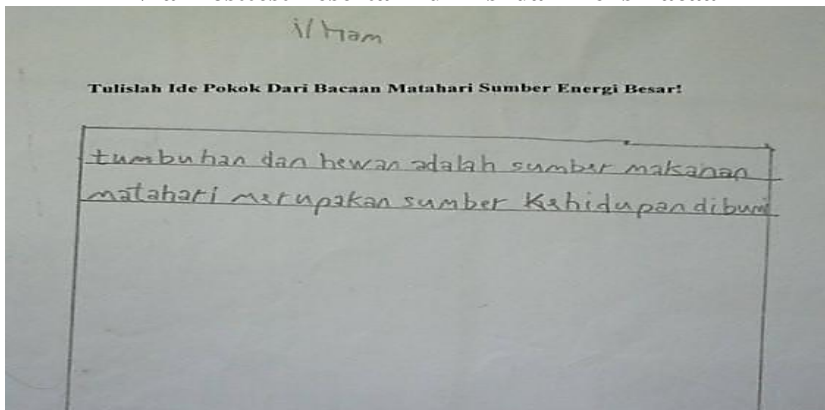 ilham
Tulislah Ide Pokok Dari Bacaan Matahari Sumber Energi Besar!
tumbuhan dan hewan adalah sumber makanan
matahari merupakan sumber Kehidupan dibumi